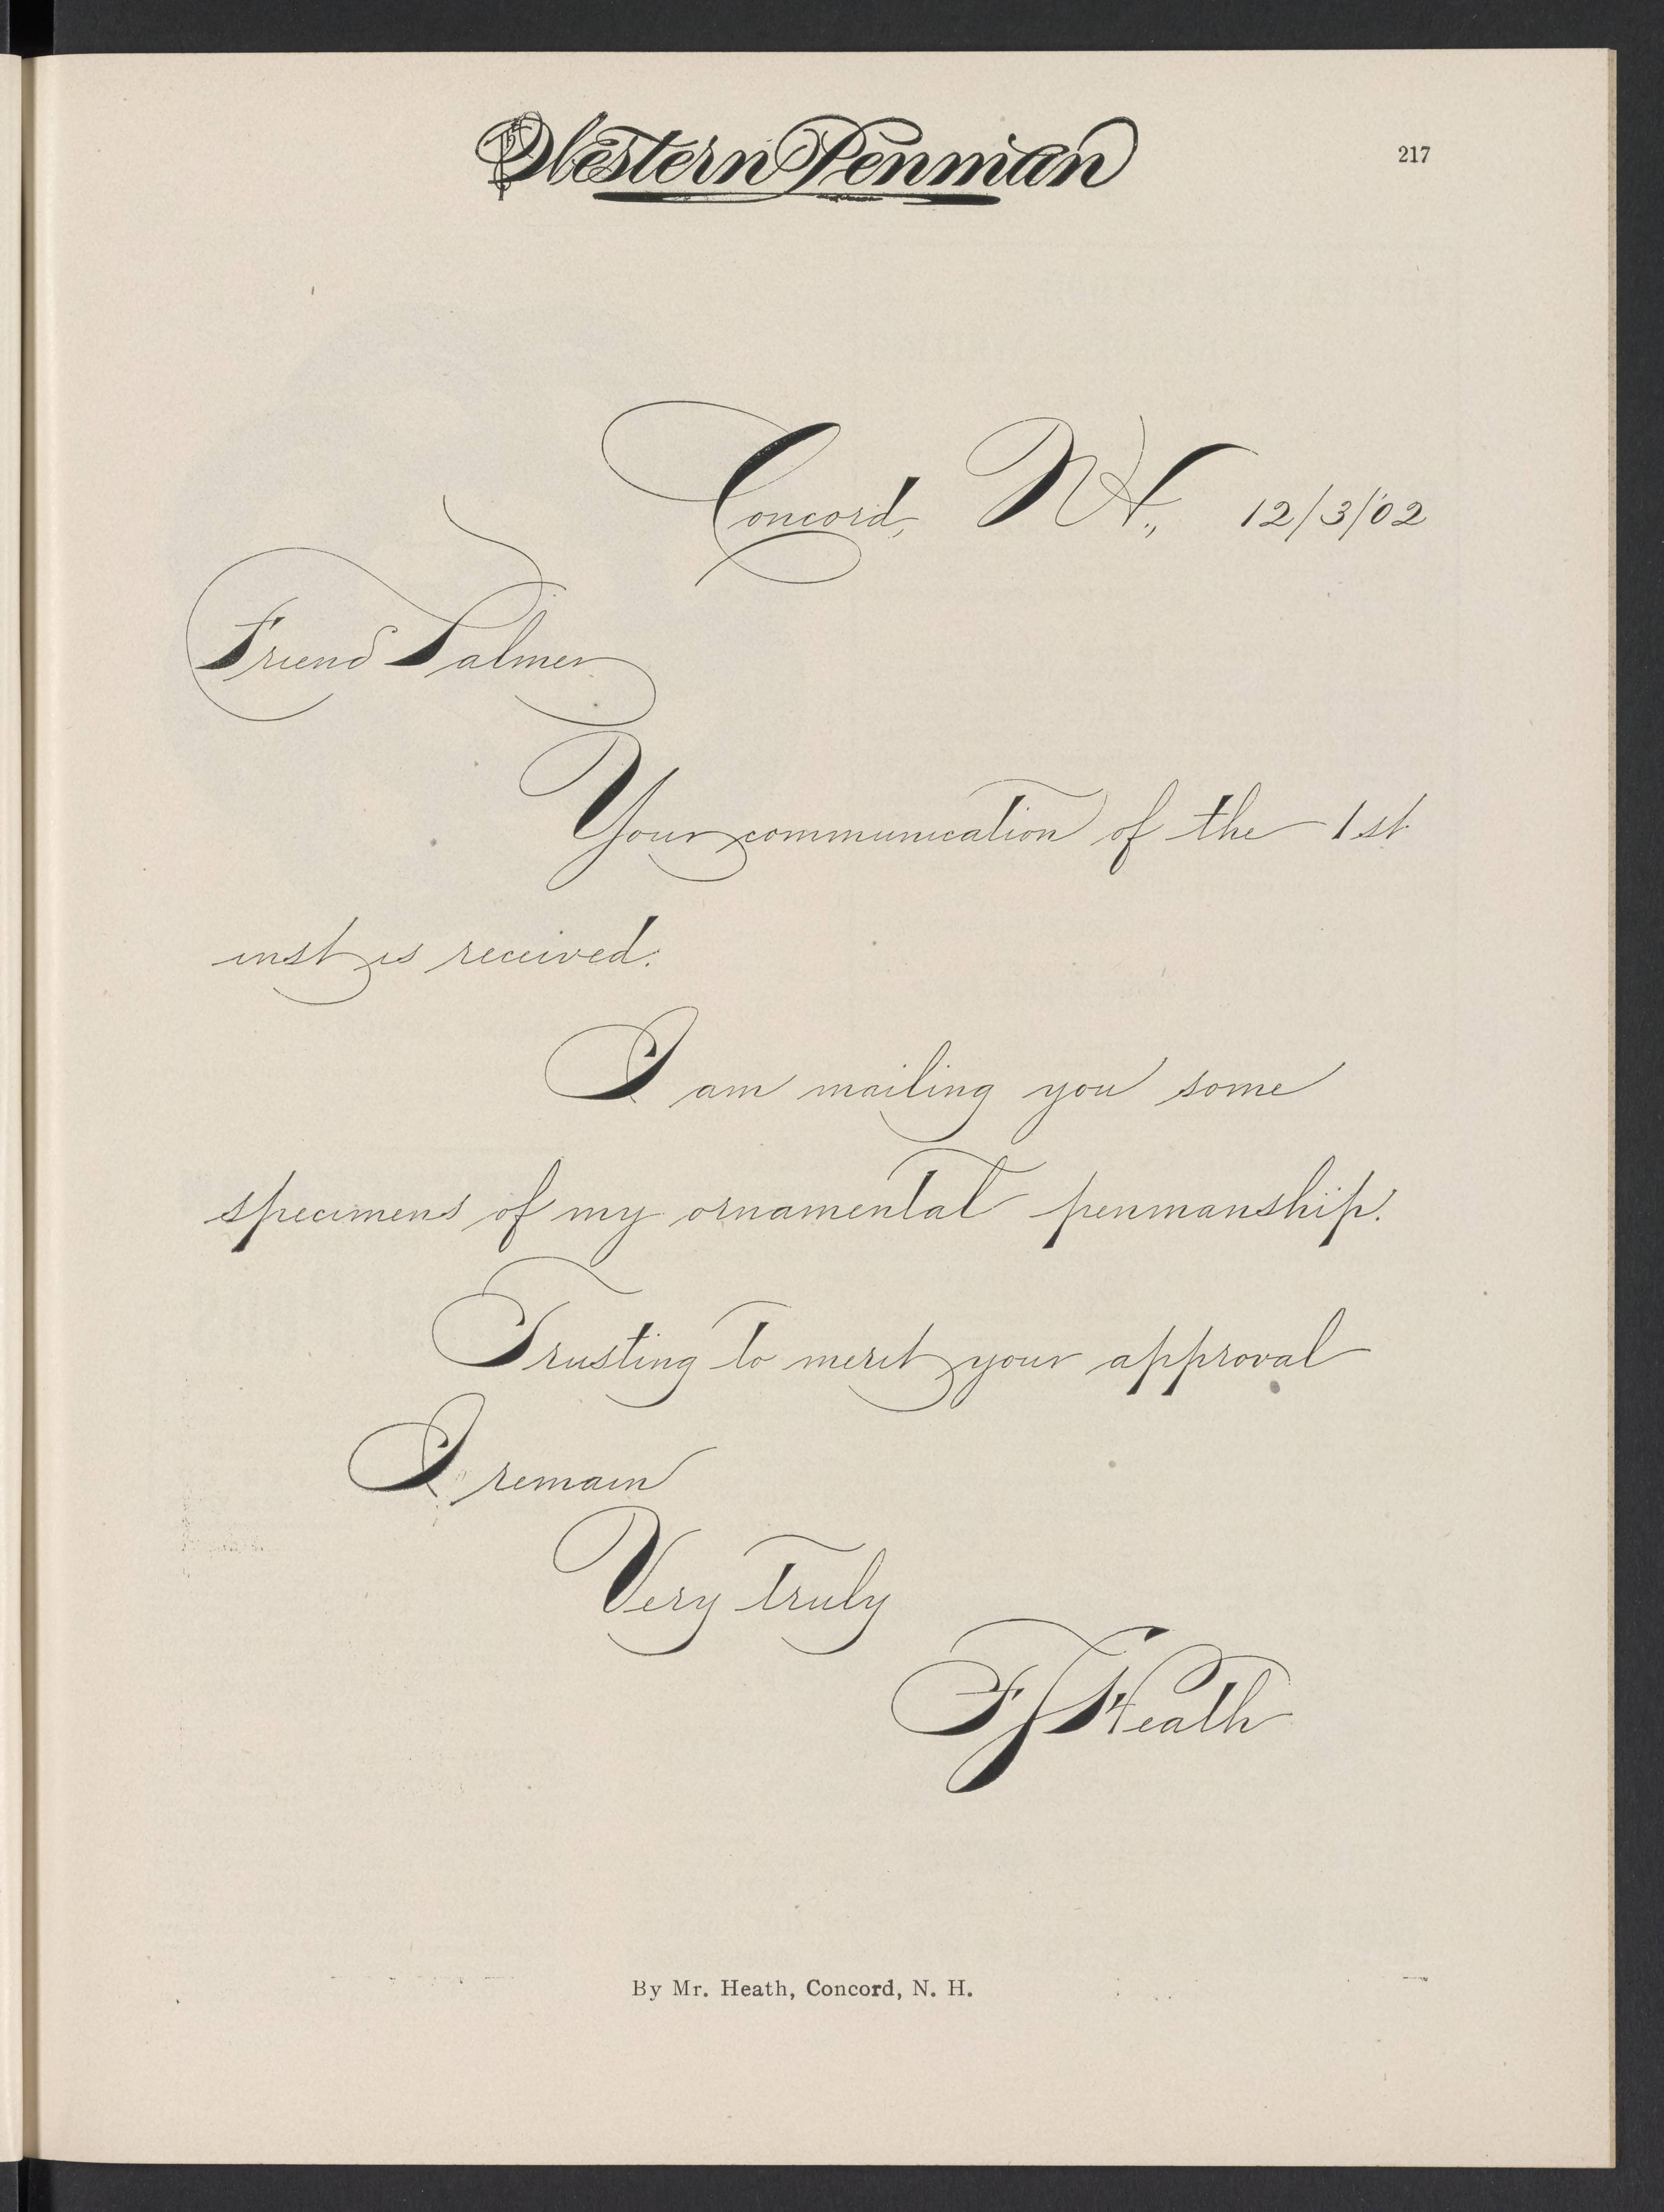 The Western Penman
217
Concord, N.H., 12/3/'02
Friend Palmer
Your communication of the 1st
inst is received.
I am mailing you some
specimens of my ornamental penmanship.
Trusting to merit your approval
I remain
Very truly
F J Heath
By Mr. Heath, Concord, N. H.